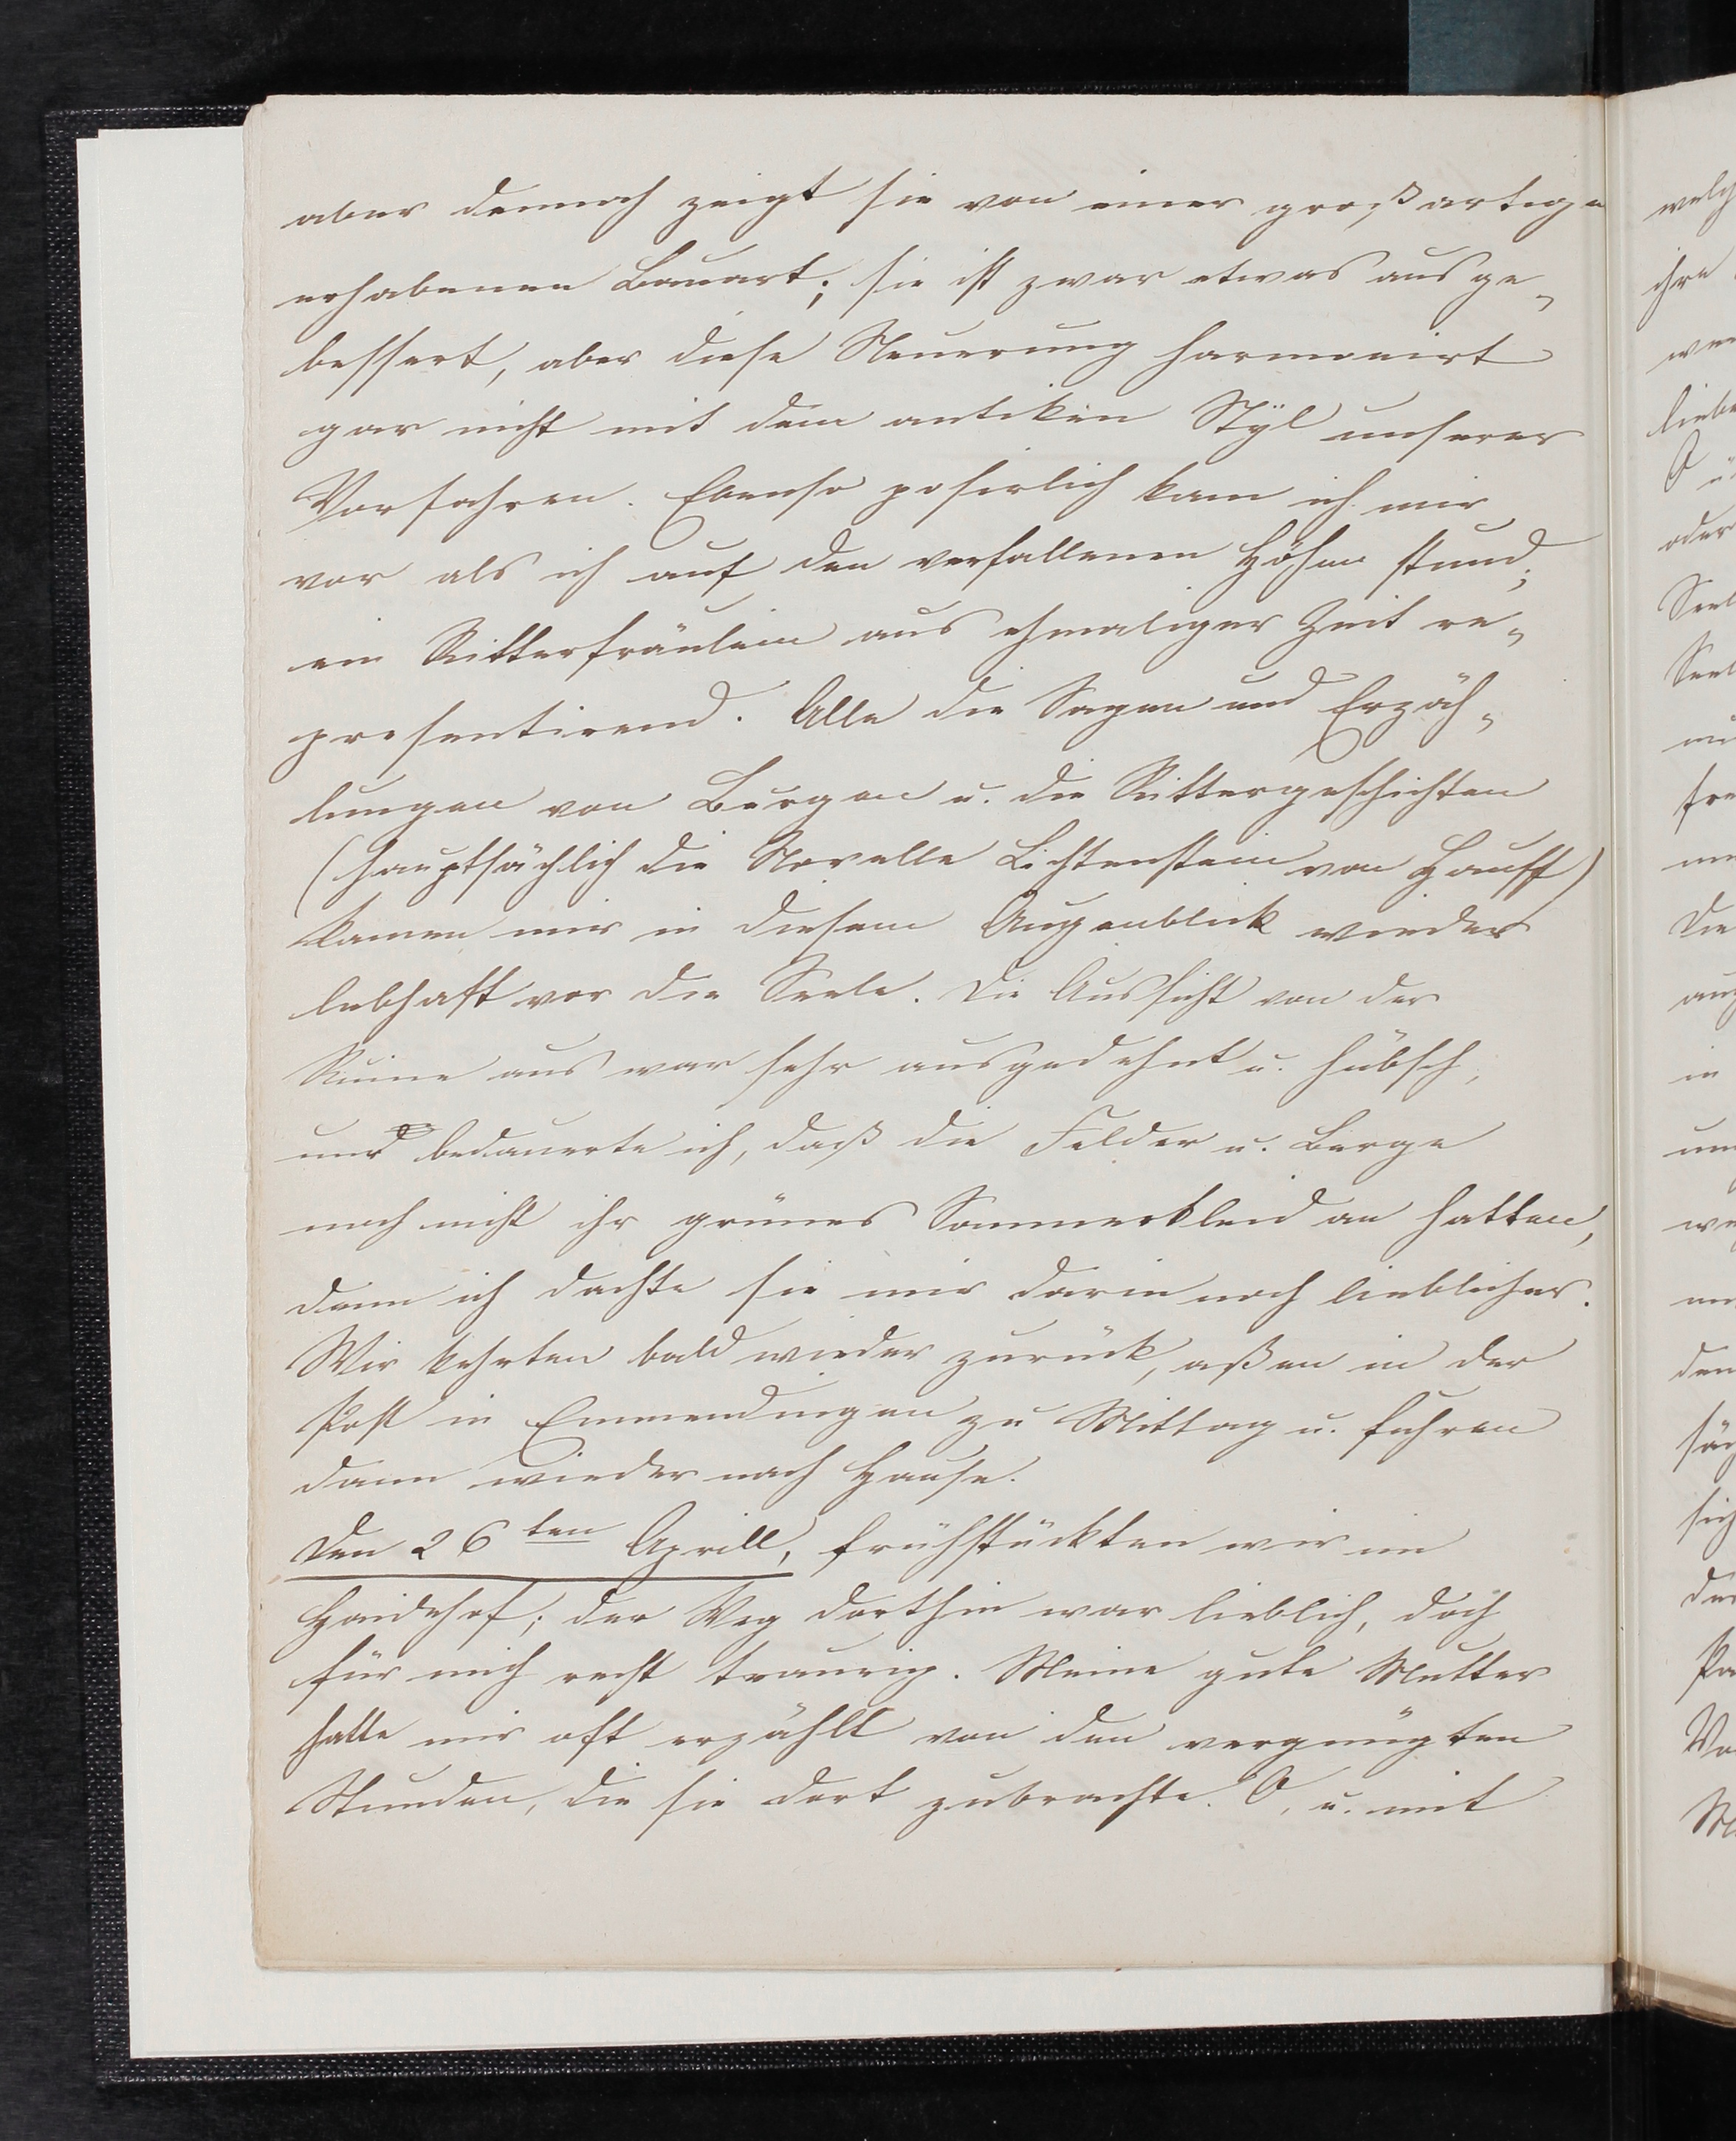 aber dennoch zeigt sie von einer großartigen
erhabenen Bauart; sie ist zwar etwas ausge-
bessert, aber diese Neuerung harmonirt
gar nicht mit dem antiken Styl unserer
Vorfahren. Ebenso posirlich kam ich mir
vor als ich auf den verfallenen Höhen stund;
ein Ritterfräulein aus ehmaliger Zeit re-
presentirend. Alle die Sagen und Erzäh-
lungen von Burgen u. die Rittergeschichten
(hauptsächlich die Novelle Lichtenstein von Hauff)
kamen mir in diesem Augenblick wieder
lebhaft vor die Seele. Die Aussicht von der
Ruine aus war sehr ausgedehnt u. hübsch,
und bedauerte ich, daß die Felder u. Berge
noch nicht ihr grünes Sommerkleid an hatten,
denn ich dachte sie mir darin noch lieblicher.
Wir kehrten bald wieder zurück, aßen in der
Post in Emmendingen zu Mittag u. fuhren
dann wieder nach Hause.
Den 26ten Aprill, frühstückten wir im
Haidehof; der Weg dorthin war lieblich, doch
für mich recht traurig. Meine gute Mutter
hatte mir oft erzählt von den vergnügten
Stunden, die sie dort zubrachte. O, u. mit